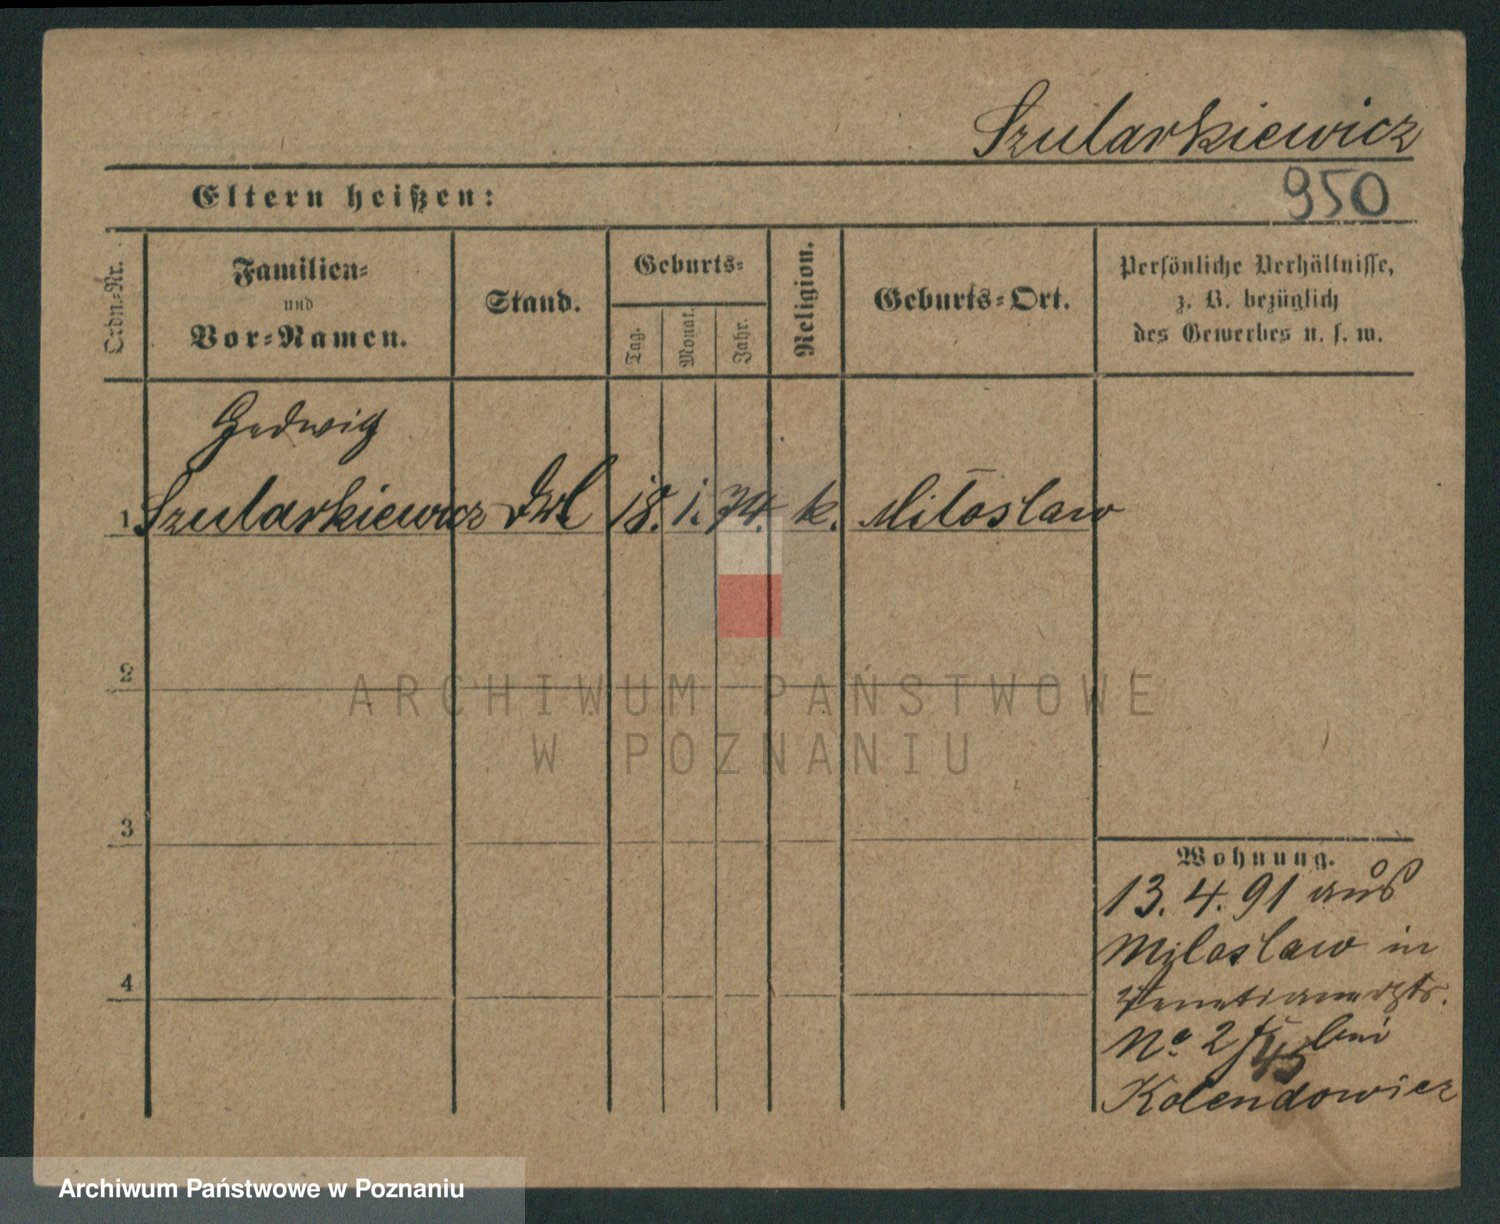 Szularkiewicz
Eltern heißen:
950
Ordn=Nr.
Familien=
und
Vor=Namen.
Stand.
Geburts=
Tag.
Monat.
Jahr.
Religion.
Geburts=Ort.
Persönliche Verhältnisse,
z. B. bezüglich
des Gewerbes u. s. w.
Hedwig
1 Szularkiewicz 18. 1. 74. k. Miloslaw
2
3
4
Wohnung.
13. 4. 91 aus
Miloslaw in
No 2 bei
Kolendowicz
ARCHIWUM PAŃSTWOWE
W POZNANIU
Archiwum Państwowe w Poznaniu